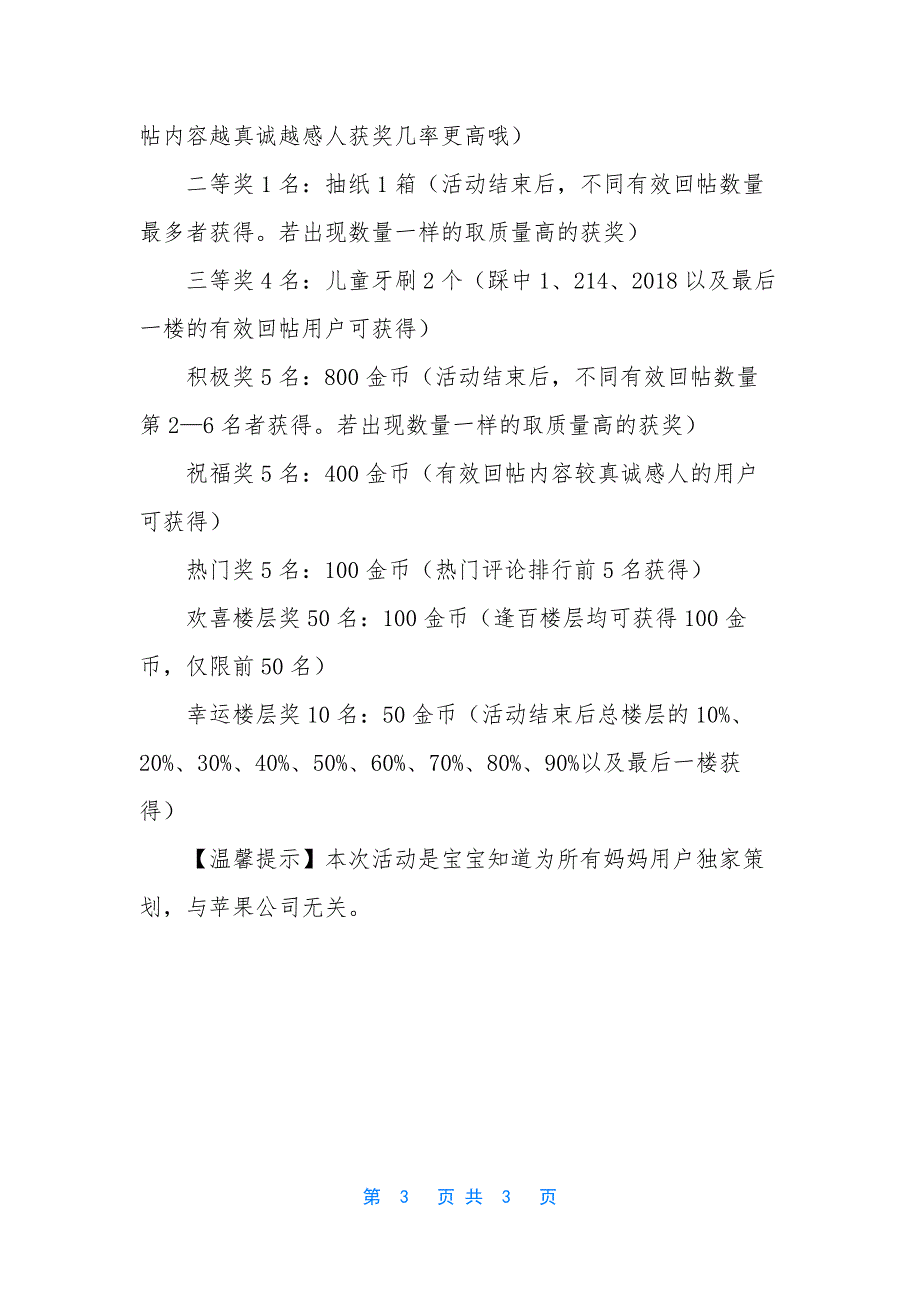 帖内容越真诚越感人获奖几率更高哦）
二等奖 1 名：抽纸 1 箱（活动结束后，不同有效回帖数量
最多者获得。若出现数量一样的取质量高的获奖）
三等奖 4 名：儿童牙刷 2 个（踩中 1、214、2018 以及最后
一楼的有效回帖用户可获得）
积极奖 5 名：800 金币（活动结束后，不同有效回帖数量
第 2—6 名者获得。若出现数量一样的取质量高的获奖）
祝福奖 5 名：400 金币（有效回帖内容较真诚感人的用户
可获得）
热门奖 5 名：100 金币（热门评论排行前 5 名获得）
欢喜楼层奖 50 名：100 金币（逢百楼层均可获得 100 金
币，仅限前 50 名）
幸运楼层奖 10 名：50 金币（活动结束后总楼层的 10%、
20%、30%、40%、50%、60%、70%、80%、90%以及最后一楼获
得）
【温馨提示】本次活动是宝宝知道为所有妈妈用户独家策
划，与苹果公司无关。
第 3 页 共 3 页